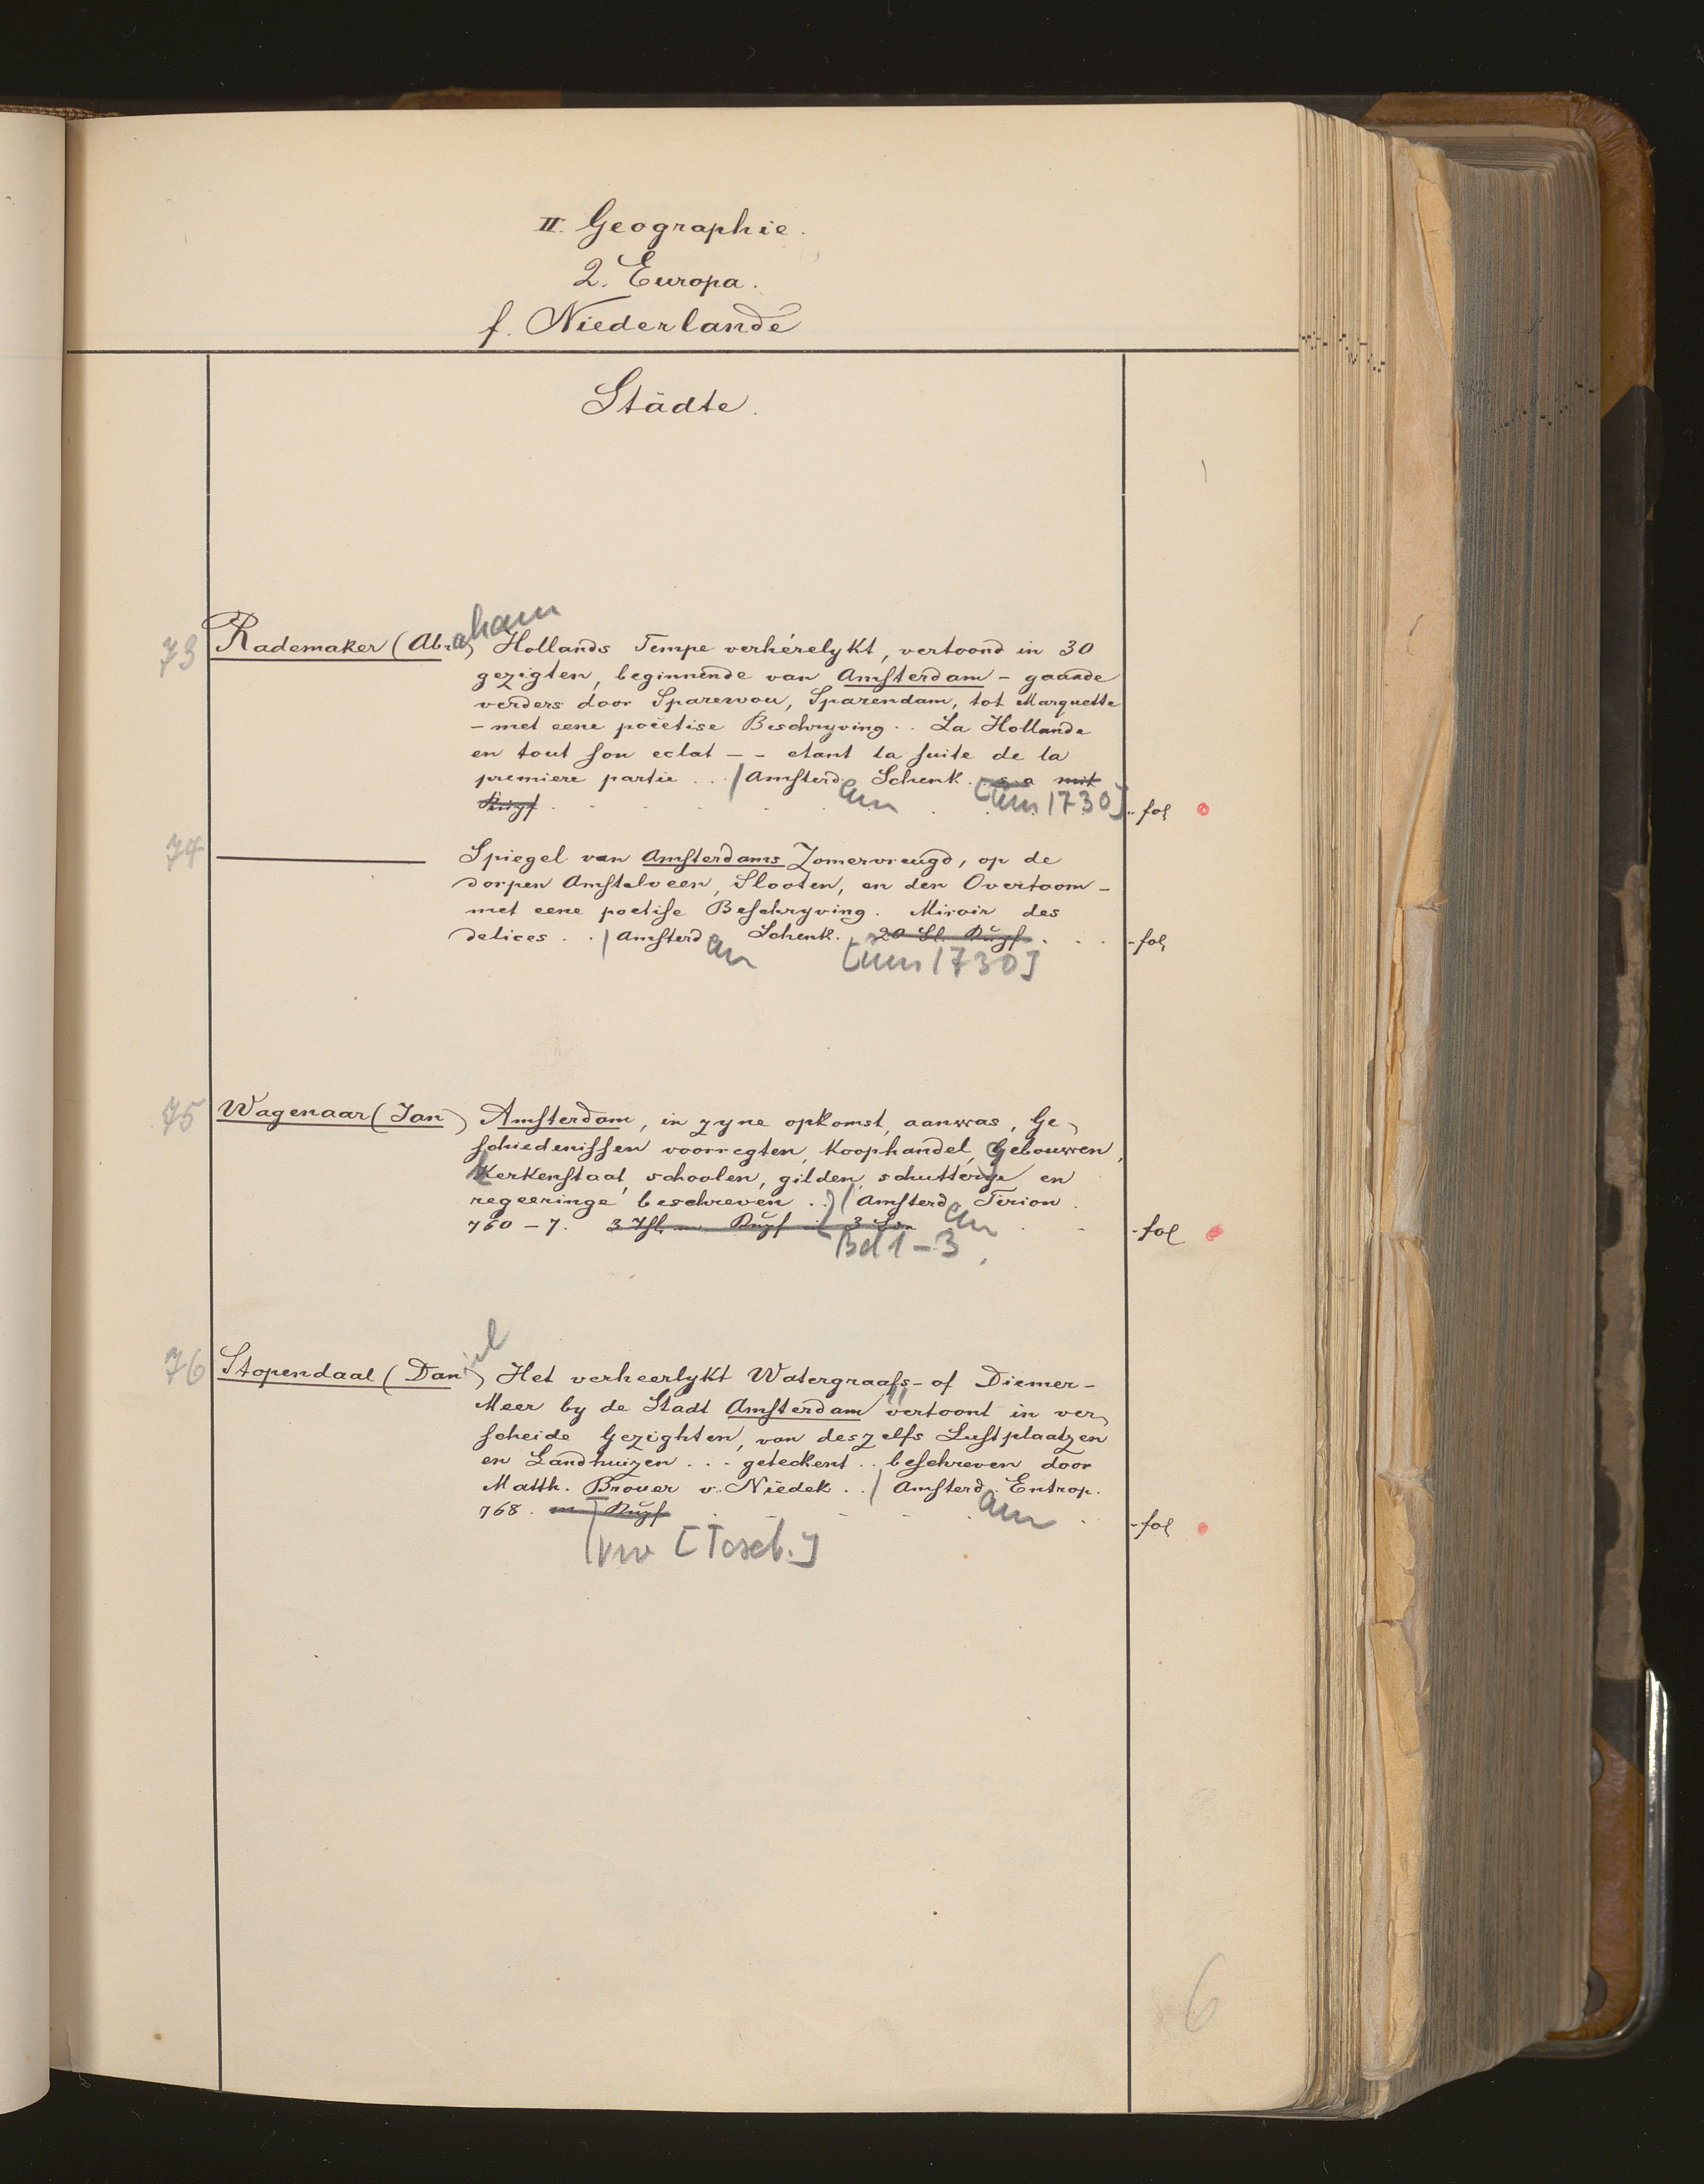 II. Geographie.
2. Europa.
f. Niederlande
Städte.
73 Rademaker (Abraham) Hollands Tempe verhérelykt, vertoond in 30
gezigten, beginnende van Amsterdam – gaande
verders door Sparewou, Sparendam, tot Marquette
– met eene poëetise Beschryving . . La Hollande
en tout son eclat – – etant la suite de la
premiere partie . . . / Amsterdam Schenk. s. a mit
Kupf. [um 1730] - fol
74 ——— Spiegel van Amsterdams Zomervreugd, op de
dorpen Amstelveen, Slooten, en den Overtoom –
met eene poetise Beschryving. Miroir des
delices . . / Amsterdam Schenk. 20 Bl. Kupf. . . . - fol
[um 1730]
75 Wagenaar (Jan) Amsterdam, in zyne opkomst, aanwas, Ge-
schiedenissen voorregten, koophandel, Gebouwen,
kerkenstaat, schoolen, gilden, schutterye en
regeeringe beschreven . . / Amsterdam Tirion.
760 – 7. 3 Thl. m. Kupf - fol
Bd 1 – 3.
76 Stopendaal (Daniel) Het verheerlykt Watergraafs- of Diemer-
Meer by de Stadt Amsterdam vertoont in ver-
scheide Gezighten, van deszelfs Lustplaatzen
en Landhuizen . . . geteckent . . beschreven door
Matth. Brouer v. Niedek . . / Amsterdam Entrop.
768. m Kupf - fol
6